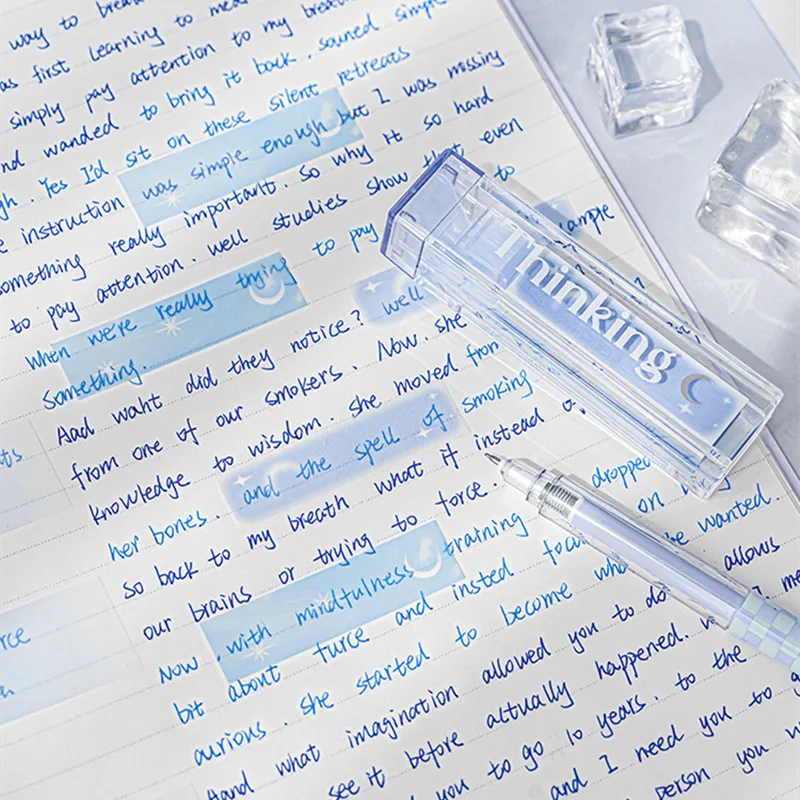 way to brea
as first learning to me
simply pay attention to my brea
nd wanded to bring it back. souned simple
gh. Yes I'd sit on these silent retreats
e instruction was simple enough but I was missing
something really important. So why it so hard
to pay attention. well studies show that even
when we're really trying to pay to
something. well ample
And waht did they notice?
from one of our smokers. Now. she
knowledge to wisdom. she moved from
her bones. and the spell of smoking
so back to my breath what if instead o
our brains or trying to force. dropped
Now .with mindfulness training on
bit about furce and insted focu he wanted.
curious. she started to become wh allows
And what imagination allowed you to do me
see it before actually happened.
you to go 10 years. to the
and I need you to g
person you w
Thinking
ts
rce